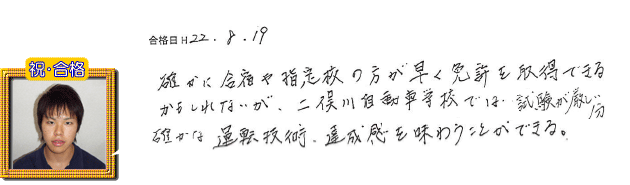 合格日 H22.8.19
祝・合格
確かに合宿や指定校の方が早く免許を取得できる
かもしれないが、二俣川自動車学校では試験が厳しい分
確かな運転技術、達成感を味わうことができる。